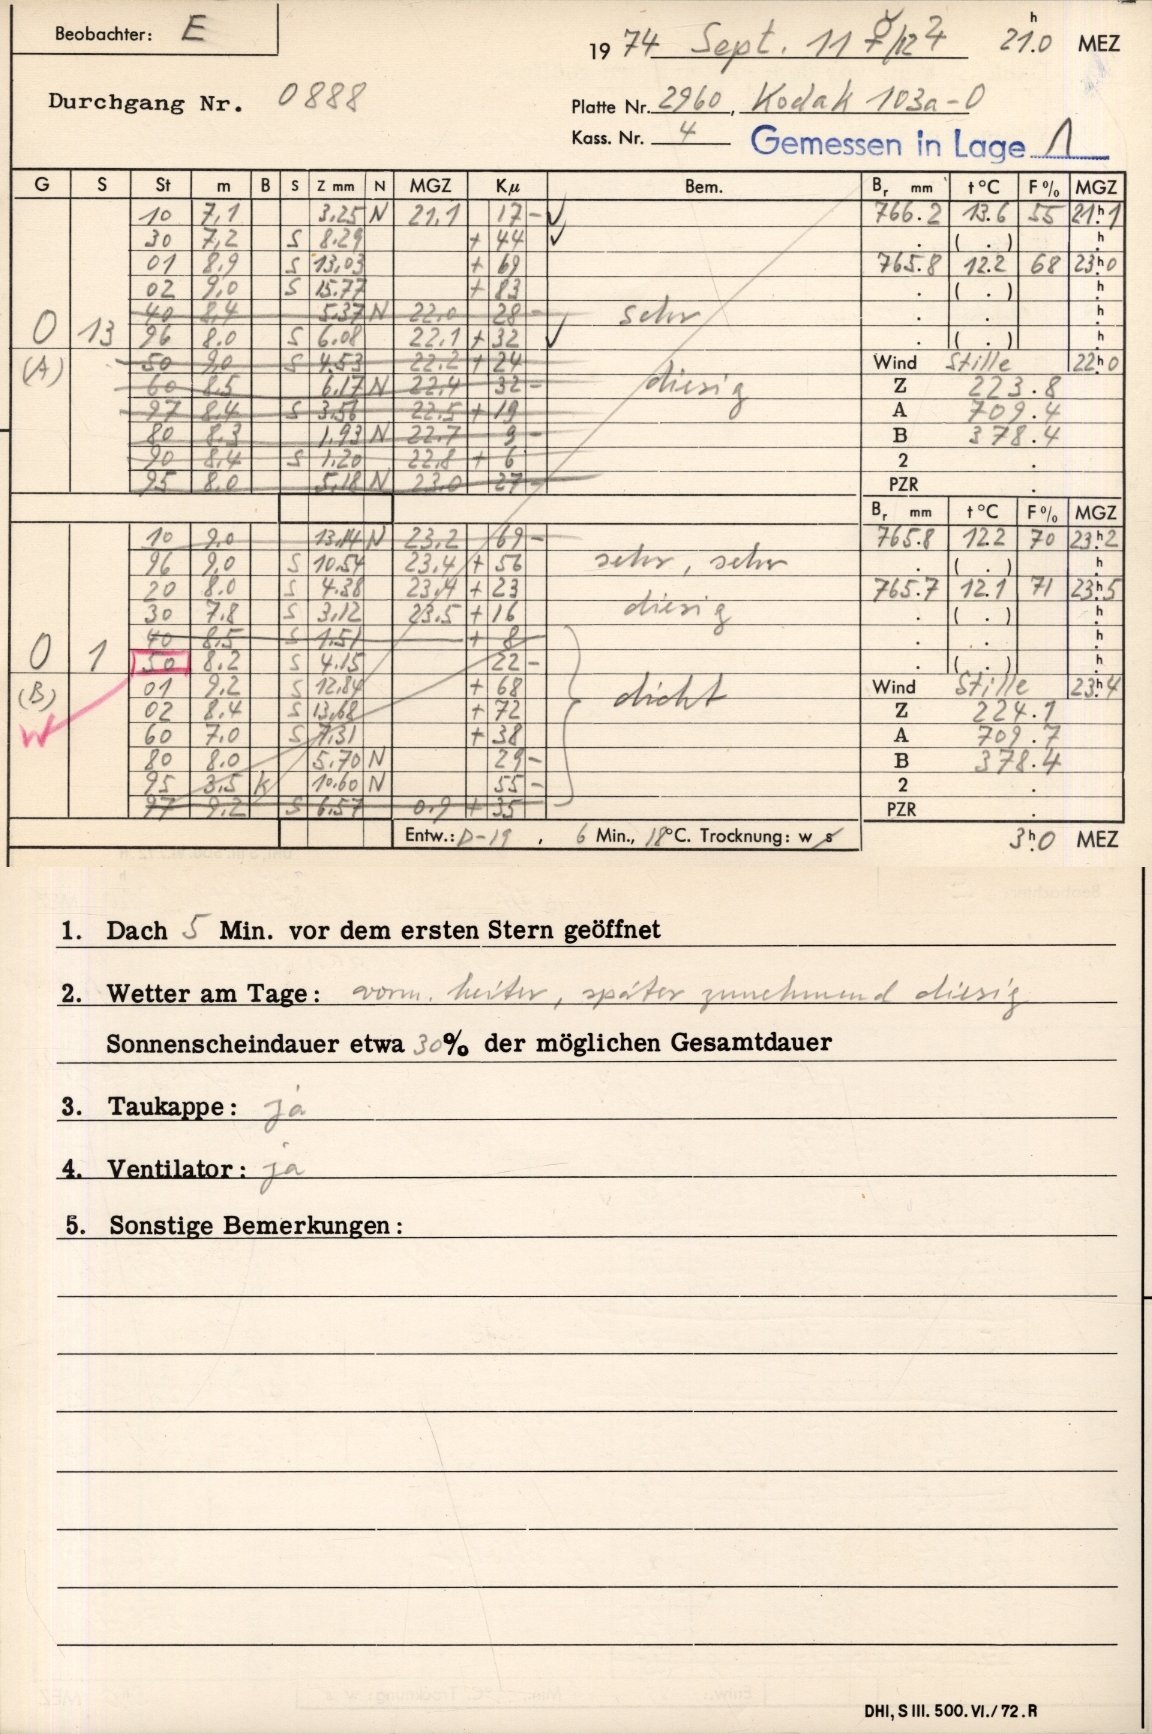 Beobachter: E
1974 Sept. 11 ☿/12 ♃ 21ʰ.0 MEZ
Durchgang Nr. 0888
Platte Nr. 2960, Kodak 103a-O
Kass. Nr. 4 Gemessen in Lage 1
G S St m B S Z mm N MGZ Kμ Bem. Bᵣ mm t °C F % MGZ
10 7,1 3,25 N 21,1 17 - ✓ 766.2 13.6 55 21ʰ.1
30 7,2 S 8,29 + 44 ✓ . ( . ) ʰ.
01 8,9 S 13,03 + 69 765.8 12.2 68 23ʰ.0
02 9,0 S 15,77 + 83 . ( . ) ʰ.
40 8,4 5,37 N 22,0 28 - sehr . . ʰ.
0 13 96 8,0 S 6,08 22,1 + 32 ✓ . ( . ) ʰ.
(A) 50 9,0 S 4,53 22,2 + 24 Wind Stille 22ʰ.0
60 8,5 6,17 N 22,4 32 - diesig Z 223.8
97 8,4 S 3,56 22,5 + 19 A 709.4
80 8,3 1,93 N 22,7 9 - B 378.4
90 8,4 S 1,20 22,8 + 6 2 .
95 8,0 5,18 N 23,0 27 - PZR .
Bᵣ mm t °C F % MGZ
10 9,0 13,14 N 23,2 69 - 765.8 12.2 70 23ʰ.2
96 9,0 S 10,54 23,4 + 56 sehr, sehr . ( . ) ʰ.
20 8,0 S 4,38 23,4 + 23 765.7 12.1 71 23ʰ.5
30 7,8 S 3,12 23,5 + 16 diesig . ( . ) ʰ.
40 8,5 S 1,51 + 8 . . ʰ.
0 1 50 8,2 S 4,15 22 - . ( . ) ʰ.
(B) 01 9,2 S 12,84 + 68 dicht Wind Stille 23ʰ.4
02 8,4 S 13,68 + 72 Z 224.1
60 7,0 S 7,31 + 38 A 709.7
80 8,0 5,70 N 29 - B 378.4
95 3,5 k 10,60 N 55 - 2 .
97 9,2 S 6,57 0,9 + 35 PZR .
Entw.: D-19, 6 Min., 18°C. Trocknung: w s 3ʰ.0 MEZ
1. Dach 5 Min. vor dem ersten Stern geöffnet
2. Wetter am Tage: vorm. heiter, später zunehmend diesig
Sonnenscheindauer etwa 30% der möglichen Gesamtdauer
3. Taukappe: ja
4. Ventilator: ja
5. Sonstige Bemerkungen:
DHI, S III. 500. VI./72. R